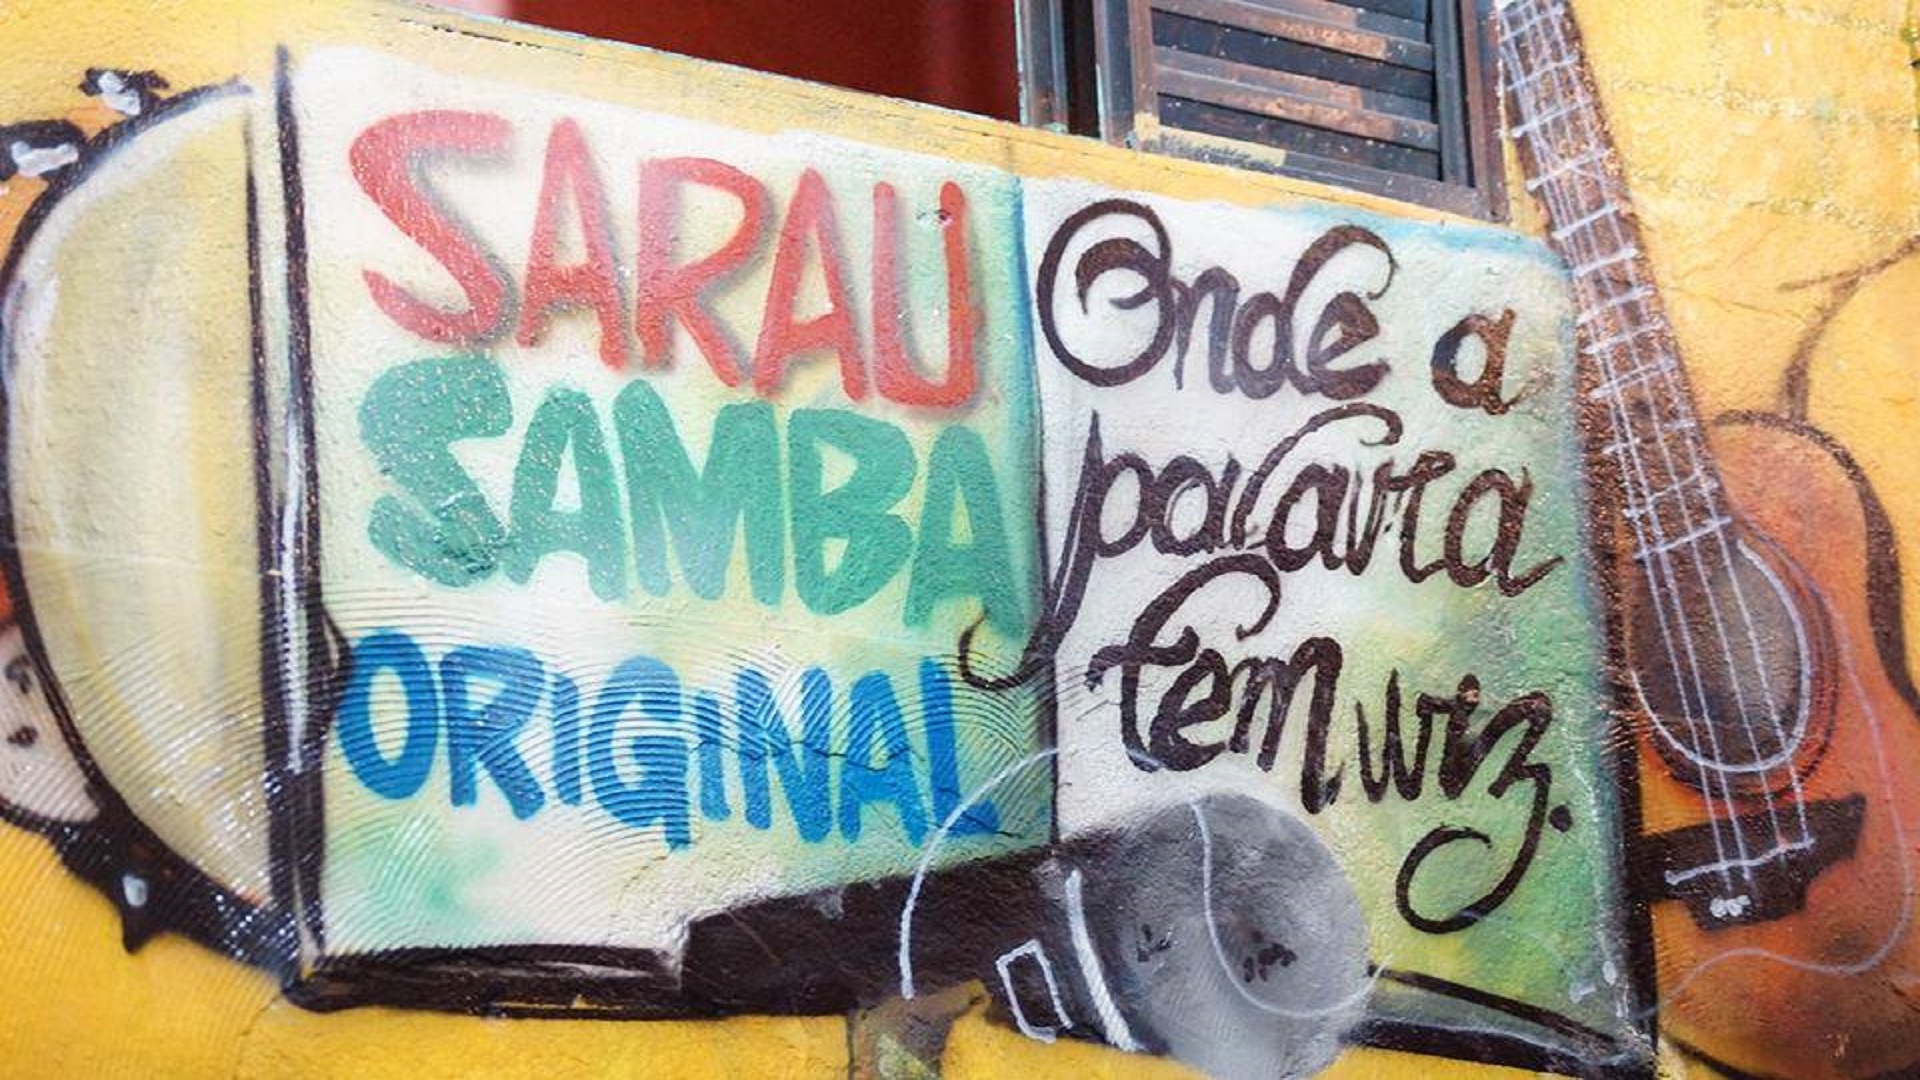 SARAU
SAMBA
ORIGINAL
Onde a
palavra
tem voz.